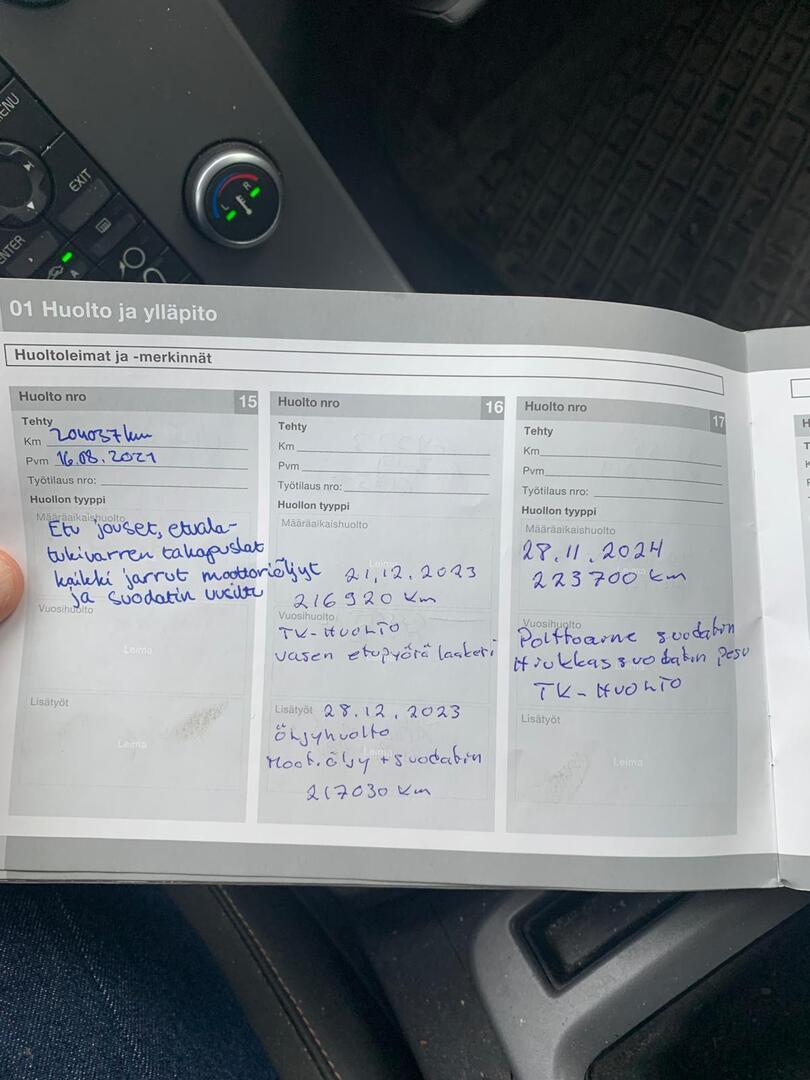 MENU
EXIT
ENTER
L R
A
01 Huolto ja ylläpito
Huoltoleimat ja -merkinnät
Huolto nro 15
Tehty
Km 204037km
Pvm 16.08.2021
Työtilaus nro:
Huollon tyyppi
Määräaikaishuolto
Etu jouset, etuala-
tukivarren takapuslat
kaikki jarrut moottoriöljyt
ja suodatin uusittu
Vuosihuolto
Leima
Lisätyöt
Leima
Huolto nro 16
Tehty
Km
Pvm
Työtilaus nro:
Huollon tyyppi
Määräaikaishuolto
21.12.2023
216920 km
Vuosihuolto
TK-HUOLTO
vasen etupyörä laakeri
Lisätyöt 28.12.2023
öljyhuolto
Moot.öljy + suodatin
Leima
217030 km
Huolto nro 17
Tehty
Km
Pvm
Työtilaus nro:
Huollon tyyppi
Määräaikaishuolto
28.11.2024
223700 km
Vuosihuolto
Polttoaine suodatin
Hiukkassuodatin pesu
TK-HUOLTO
Lisätyöt
Leima